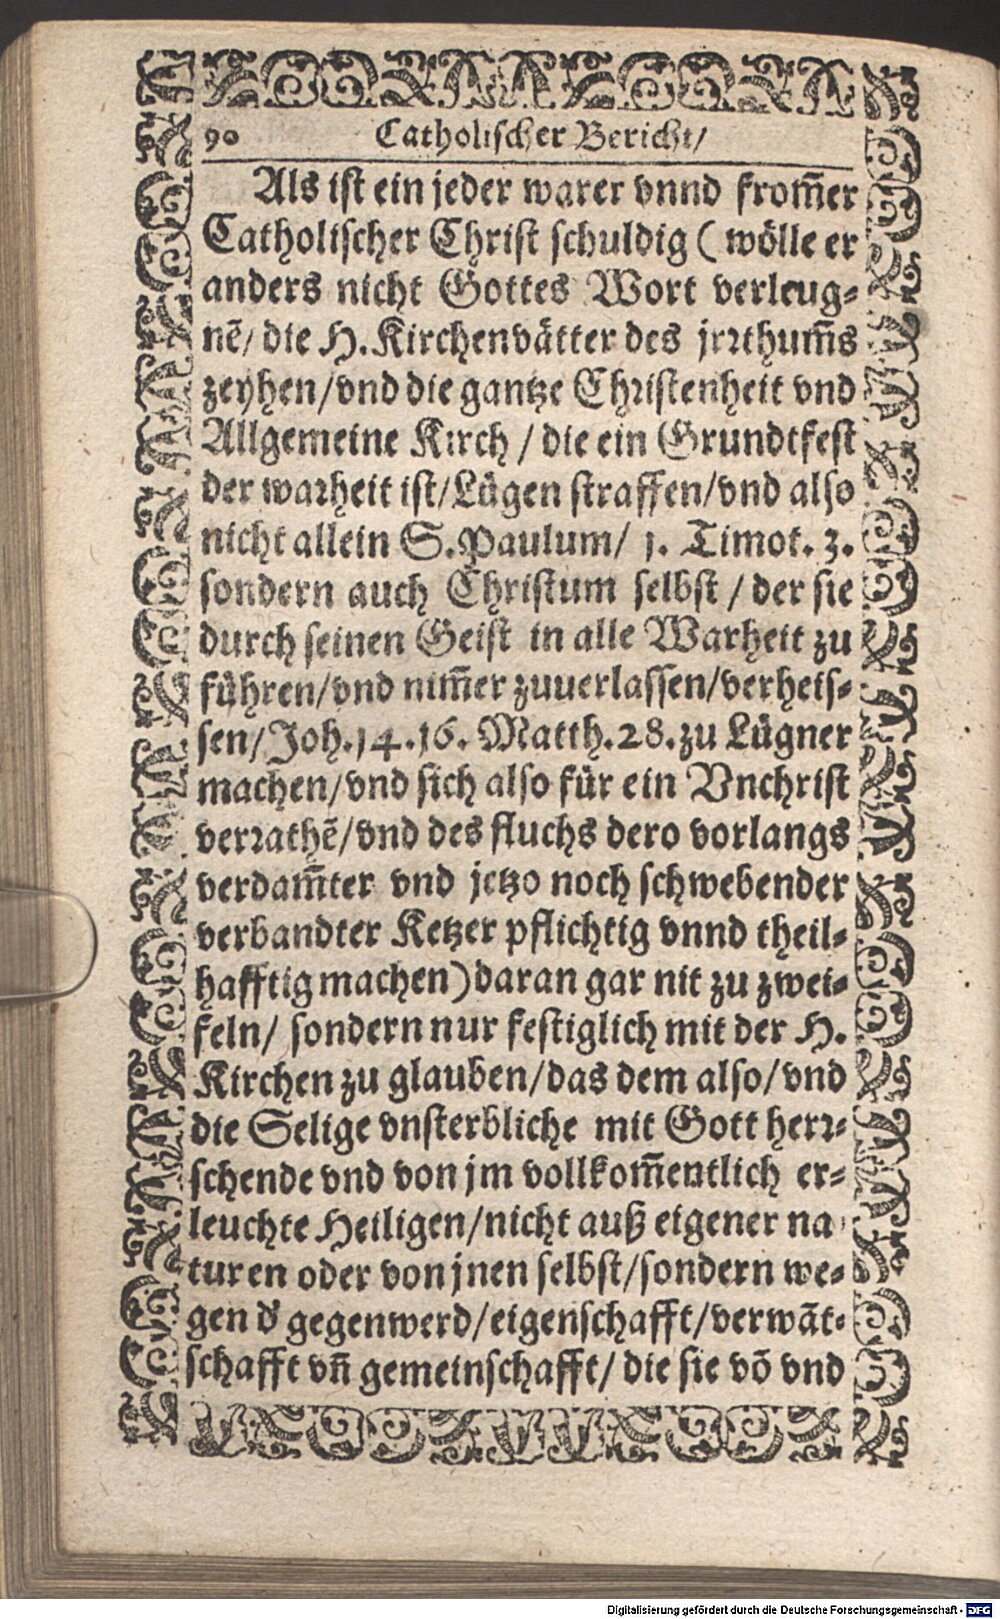 90 Catholischer Bericht/
Als ist ein jeder warer vnnd from̄er
Catholischer Christ schuldig ( wölle er
anders nicht Gottes Wort verleug⸗
nē/ die H. Kirchenvätter des jrrthum̄s
zeyhen/vnd die gantze Christenheit vnd
Allgemeine Kirch / die ein Grundtfest
der warheit ist/Lügen straffen/vnd also
nicht allein S. Paulum/ 1. Timot. 3.
sondern auch Christum selbst / der sie
durch seinen Geist in alle Warheit zu
führen/vnd nim̄er zuuerlassen/verheis⸗
sen/Joh.14.16. Matth.28.zu Lügner
machen/vnd sich also für ein Vnchrist
verrathē/vnd des fluchs dero vorlangs
verdam̄ter vnd jetzo noch schwebender
verbandter Ketzer pflichtig vnnd theil⸗
hafftig machen) daran gar nit zu zwei⸗
feln/ sondern nur festiglich mit der H.
Kirchen zu glauben/das dem also/vnd
die Selige vnsterbliche mit Gott herr⸗
schende vnd von jm vollkom̄entlich er⸗
leuchte Heiligen/nicht auß eigener na⸗
turen oder von jnen selbst/sondern we⸗
gen d' gegenwerd/eigenschafft/verwāt⸗
schafft vn̄ gemeinschafft/ die sie vō vnd
Digitalisierung gefördert durch die Deutsche Forschungsgemeinschaft - DFG